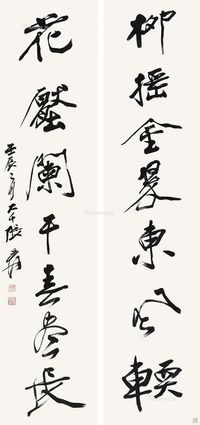 柳搖金翠東風輭
花壓闌干春晝長
壬辰 月大千張爰